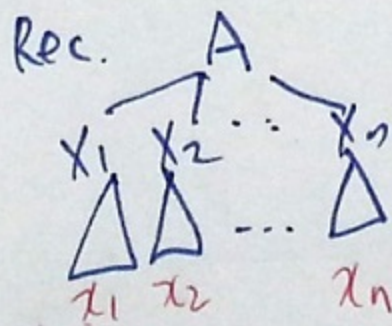 Rec. A
X1 X2 ... Xn
x1 x2 ... xn